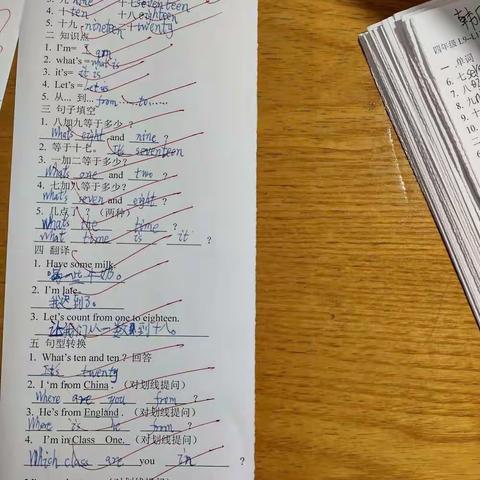 3. 九 nine 十七 seventeen
4. 十 ten 十八 eighteen
5. 十九 nineteen 二十 twenty
二 知识点
1. I'm= I am
2. what's = what is
3. it's= it is
4. Let's = Let us
5. 从... 到... from......to......
三 句子填空
1. 八加九等于多少？
What's eight and nine ?
2. 等于十七。 It's seventeen
3. 一加二等于多少？
What's one and two ?
4. 七加八等于多少？
What's seven and eight ?
5. 几点了？（两种）
What's the time ?
What time is it ?
四 翻译
1. Have some milk.
喝一些牛奶。
2. I'm late.
我迟到了。
3. Let's count from one to eighteen.
让我们从一数到十八。
五 句型转换
1. What's ten and ten？回答
It's twenty
2. I'm from China .（对划线提问）
Where are you from ?
3. He's from England .（对划线提问）
Where is he from ?
4. I'm in Class One.（对划线提问）
Which class are you in ?
四年级
一 .单词
6. 七
7. 八
8. 九
9. 十
10.